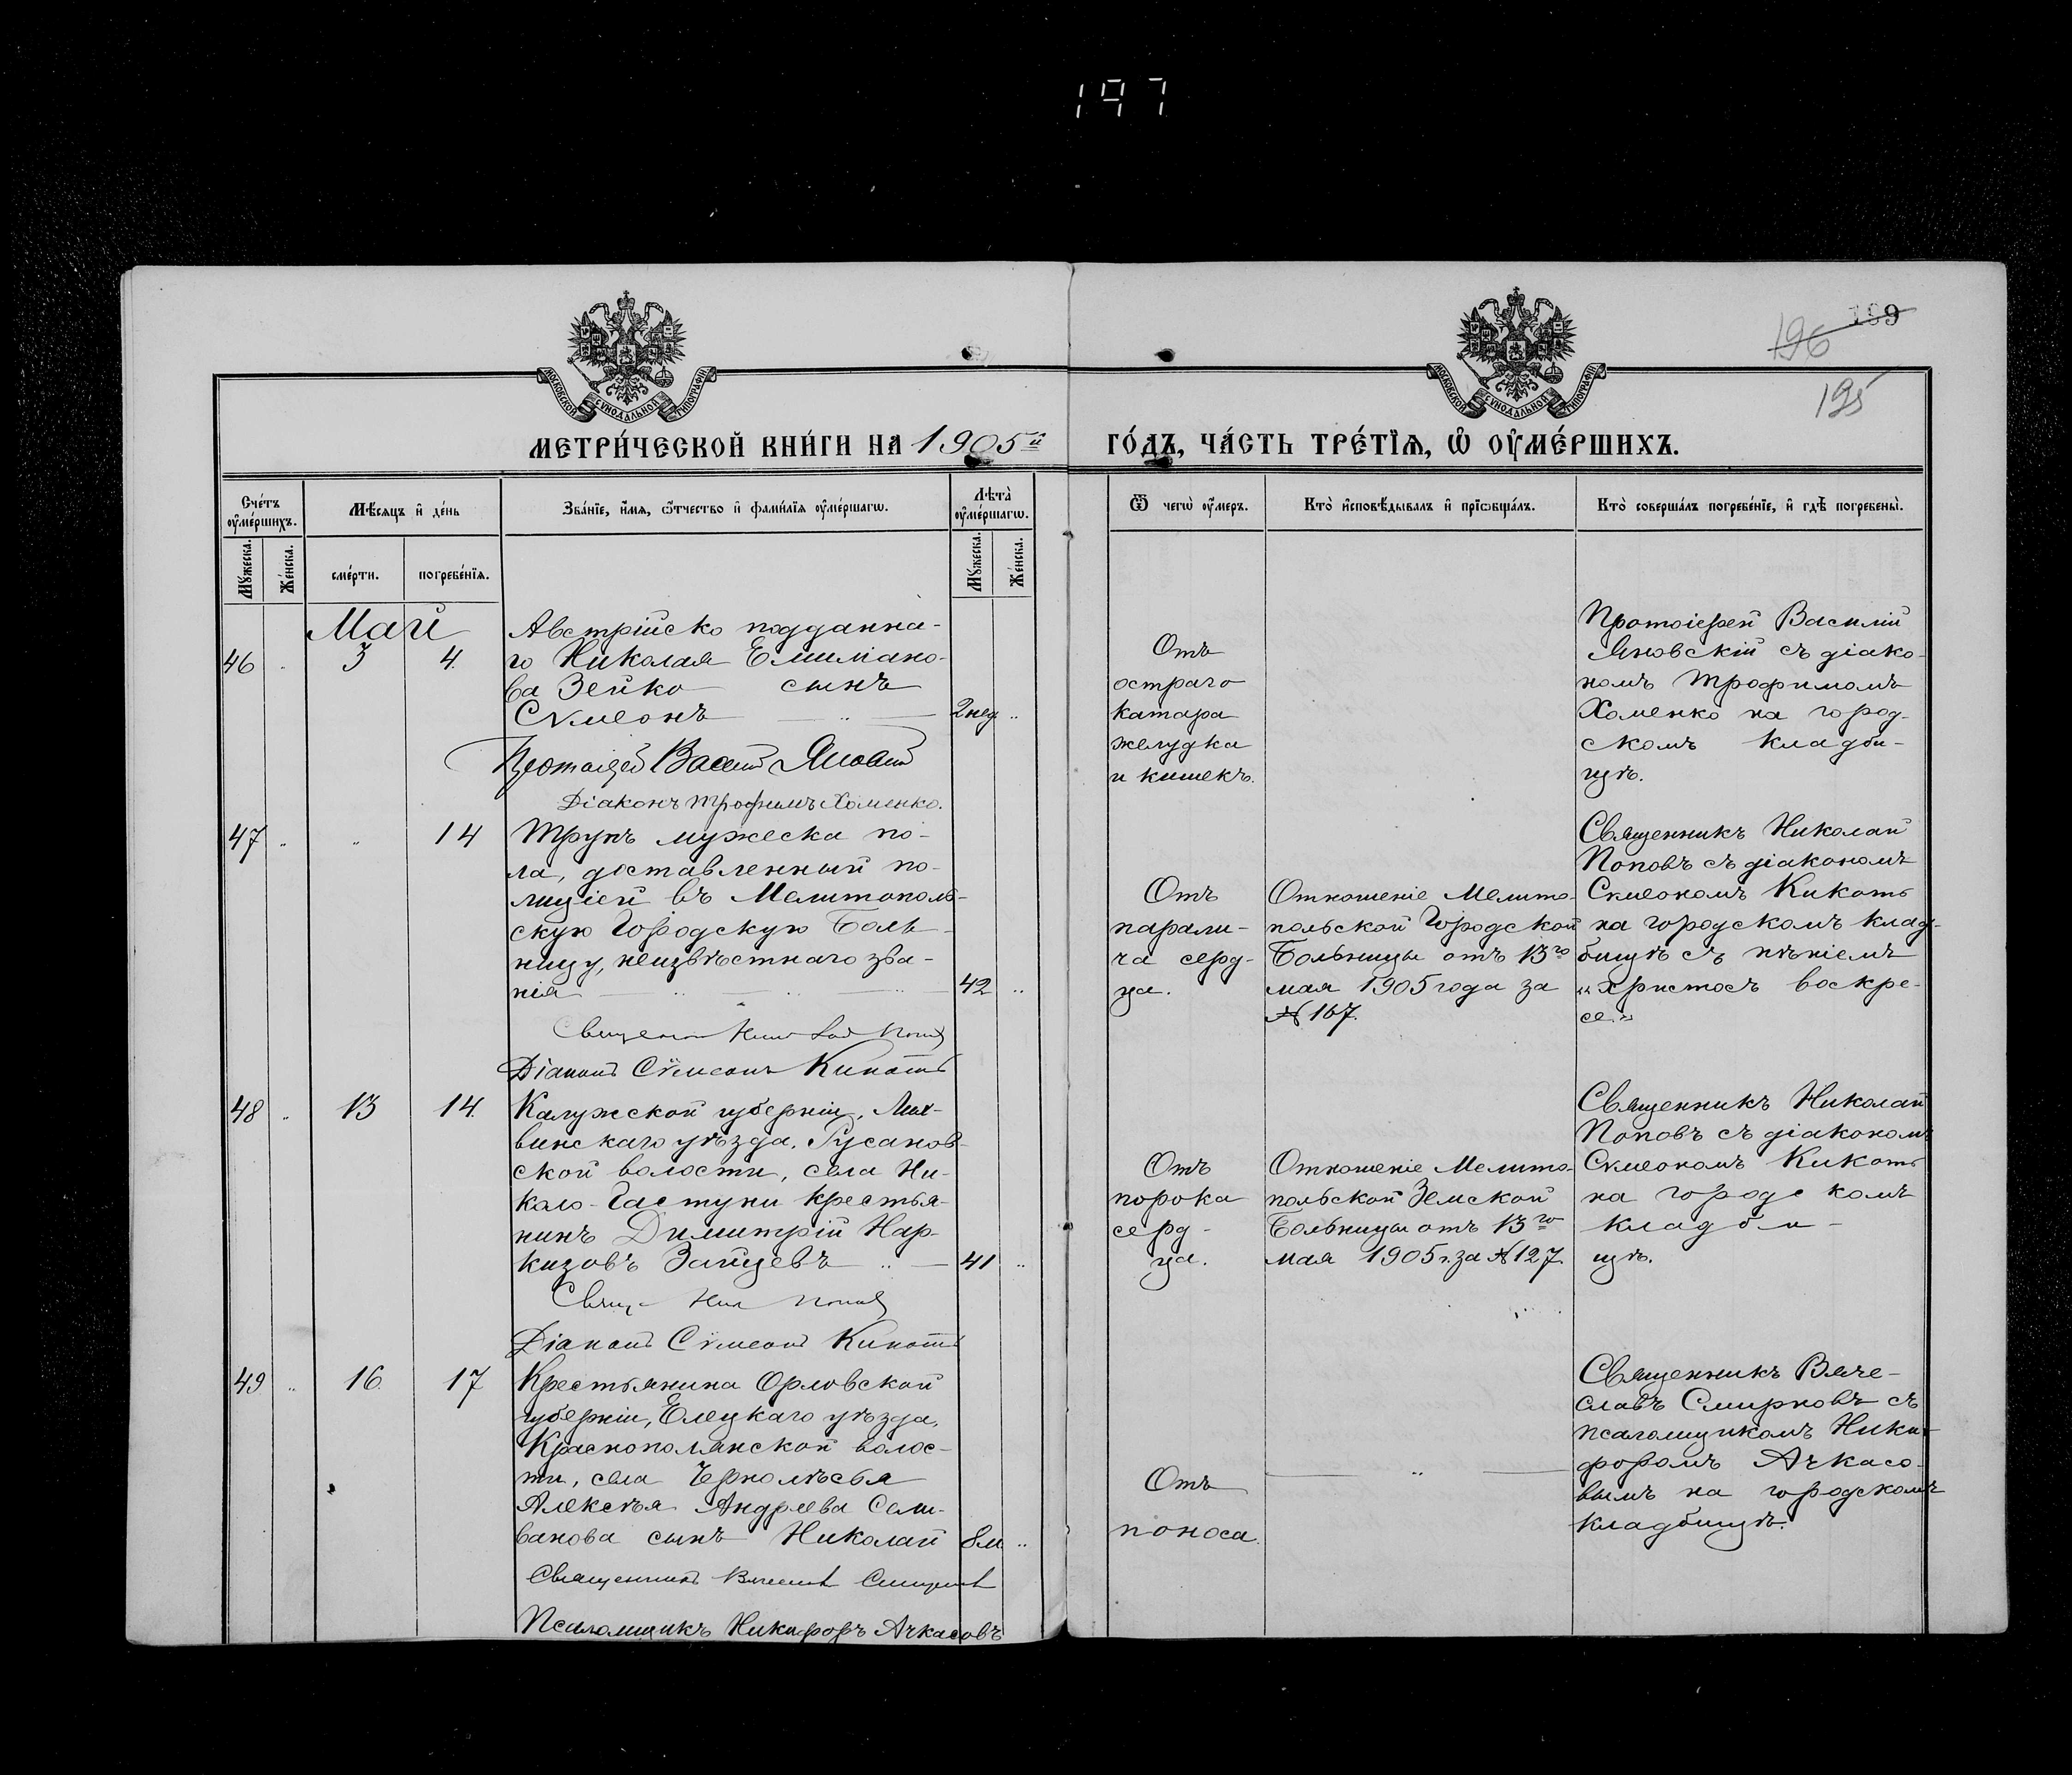 197
199
196
195
МОСКОВСКОЙ СѴНОДАЛЬНОЙ ТИПОГРАФІИ
МОСКОВСКОЙ СѴНОДАЛЬНОЙ ТИПОГРАФІИ
МЕТРИ́ЧЕСКОЙ КНИ́ГИ НА 1905й
ГО́ДЪ, ЧА́СТЬ ТРЕ́ТЇѦ, Ѡ҆ ОУ҆МЕ́РШИХЪ.
Сче́тъ оу҆ме́ршихъ.
Мѣ́сяцъ и҆ де́нь
Зва́нїе, и҆́мя, ѻ҆́тчество и҆ фами́лїя оу҆ме́ршагѡ.
Лѣта̀ оу҆ме́ршагѡ.
Ѿ чегѡ̀ оу҆́меръ.
Кто̀ и҆сповѣ́дывалъ и҆ прїѡбща́лъ.
Кто̀ соверша́лъ погребе́нїе, и҆ гдѣ̀ погребены̀.
Мꙋ́жеска.
Же́нска.
сме́рти.
погребе́нїя.
Мꙋ́жеска.
Же́нска.
Май
46 3 4
Австрійско подданна-
го Николая Емиліано-
ва Зейко сынъ
Сѵмеонъ 2 нед.
Протоіерей Василій Яновскій
Діаконъ Трофимъ Хоменко.
Отъ
остраго
катара
желудка
и кишекъ.
Протоіерей Василій
Яновскій съ діако-
номъ Трофимомъ
Хоменко на город-
скомъ кладби-
щѣ.
47 14
Трупъ мужеска по-
ла, доставленный по-
лиціей въ Мелитополь-
скую Городскую Боль-
ницу, неизвѣстнаго зва-
нія 42
Священникъ Николай Поповъ
Діаконъ Сѵмеонъ Кикоть
Отъ
парали-
ча серд-
ца.
Отношеніе Мелито-
польской Городской
Больницы отъ 13го
мая 1905 года за
№ 167.
Священникъ Николай
Поповъ съ діакономъ
Сѵмеономъ Кикоть
на городскомъ клад-
бищѣ съ пѣніемъ
„Христосъ воскре-
се“
48 13 14
Калужской губерніи, Лих-
винскаго уѣзда, Русанов-
ской волости, села Ни-
коло-Гастуни крестья-
нинъ Димитрій Нар-
кизовъ Зайцевъ 41
Свящ. Ник Поповъ
Діаконъ Сѵмеонъ Кикоть
Отъ
порока
серд-
ца.
Отношеніе Мелито-
польской Земской
Больницы отъ 13го
мая 1905 г. за № 127.
Священникъ Николай
Поповъ съ діакономъ
Сѵмеономъ Кикоть
на городскомъ
кладби-
щѣ.
49 16 17
Крестьянина Орловской
губерніи, Елецкаго уѣзда,
Краснополянской волос-
ти, села Чернолѣсья
Алексѣя Андреева Сели-
ванова сынъ Николай 8 м.
Священникъ Вячеславъ Смирновъ
Псаломщикъ Никифоръ Ачкасовъ
Отъ
поноса.
Священникъ Вяче-
славъ Смирновъ съ
псаломщикомъ Ники-
форомъ Ачкасо-
вымъ на городскомъ
кладбищѣ.